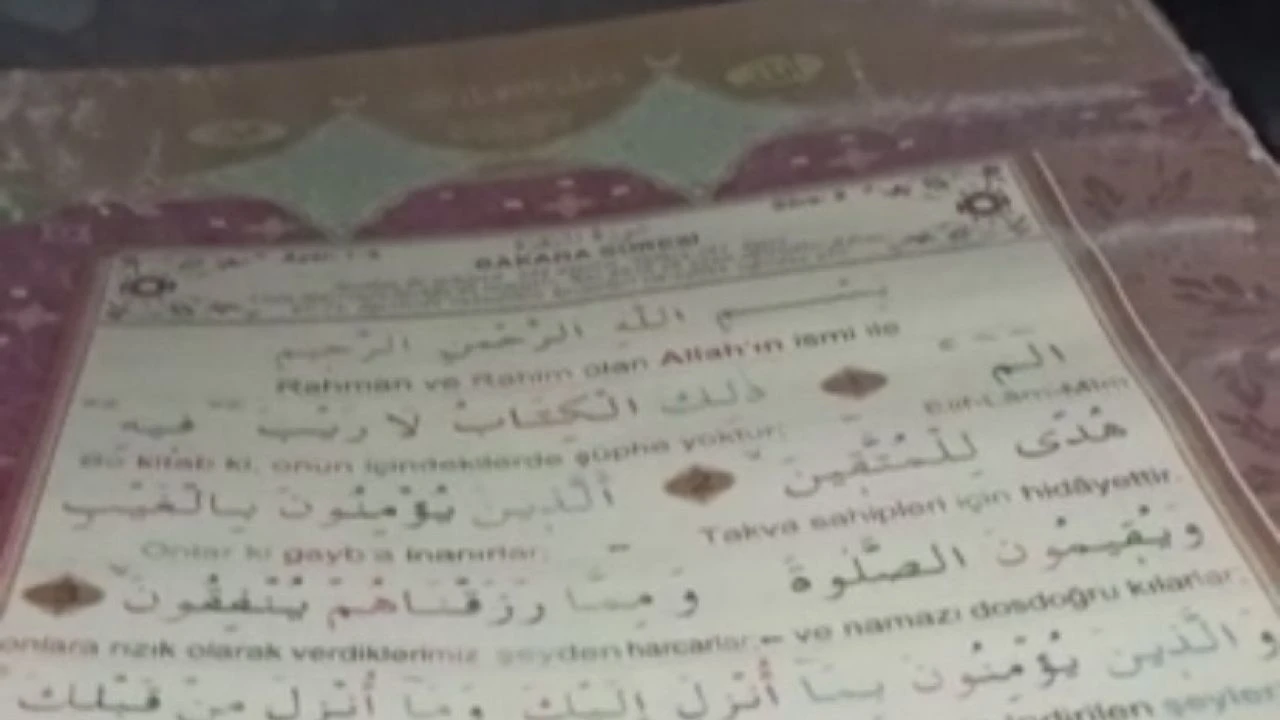 BAKARA SÛRESİ
بِسْمِ اللّٰهِ الرَّحْمٰنِ الرَّحِيمِ
Rahmân ve Rahîm olan Allah'ın ismi ile
الٓمٓ
ذٰلِكَ الْكِتَابُ لَا رَيْبَ فِيهِ
Elif-Lâm-Mîm
Bu kitab ki, onun içindekilerde şüphe yoktur;
هُدًى لِلْمُتَّقِينَ
اَلَّذِينَ يُؤْمِنُونَ بِالْغَيْبِ
Takva sahipleri için hidâyettir.
Onlar ki gayb'a inanırlar;
وَيُقِيمُونَ الصَّلٰوةَ
وَمِمَّا رَزَقْنَاهُمْ يُنْفِقُونَ
ve namazı dosdoğru kılarlar;
onlara rızık olarak verdiklerimiz şeyden harcarlar.
وَالَّذِينَ يُؤْمِنُونَ بِمَا أُنْزِلَ إِلَيْكَ وَمَا أُنْزِلَ مِنْ قَبْلِكَ